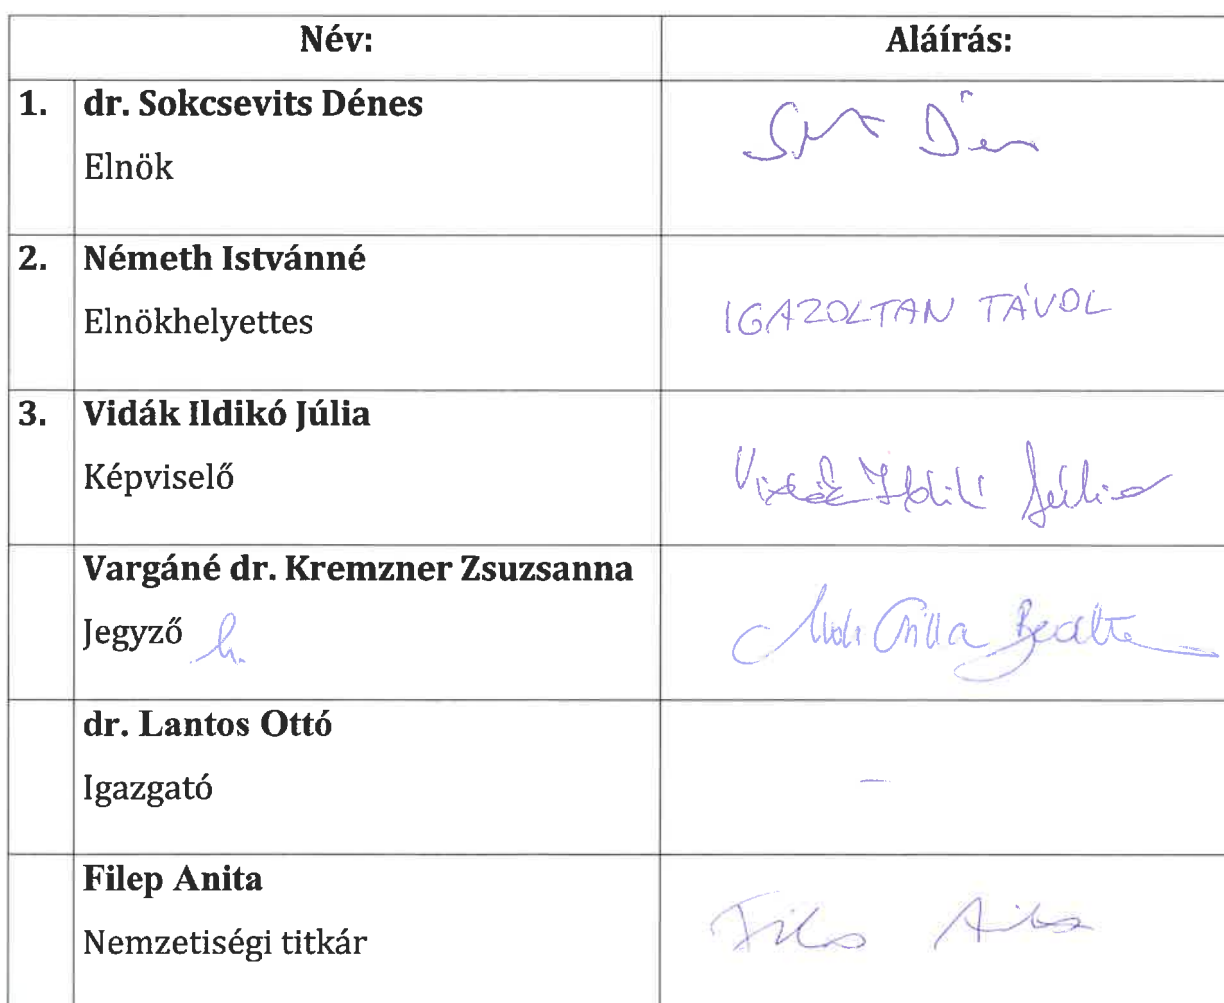 Név: Aláírás:
1. dr. Sokcsevits Dénes
Elnök
2. Németh Istvánné
Elnökhelyettes
IGAZOLTAN TÁVOL
3. Vidák Ildikó Júlia
Képviselő
Vidák Ildikó Júlia
Vargáné dr. Kremzner Zsuzsanna
Jegyző h.
Csilla Beáta
dr. Lantos Ottó
Igazgató
-
Filep Anita
Nemzetiségi titkár
Filep Anita